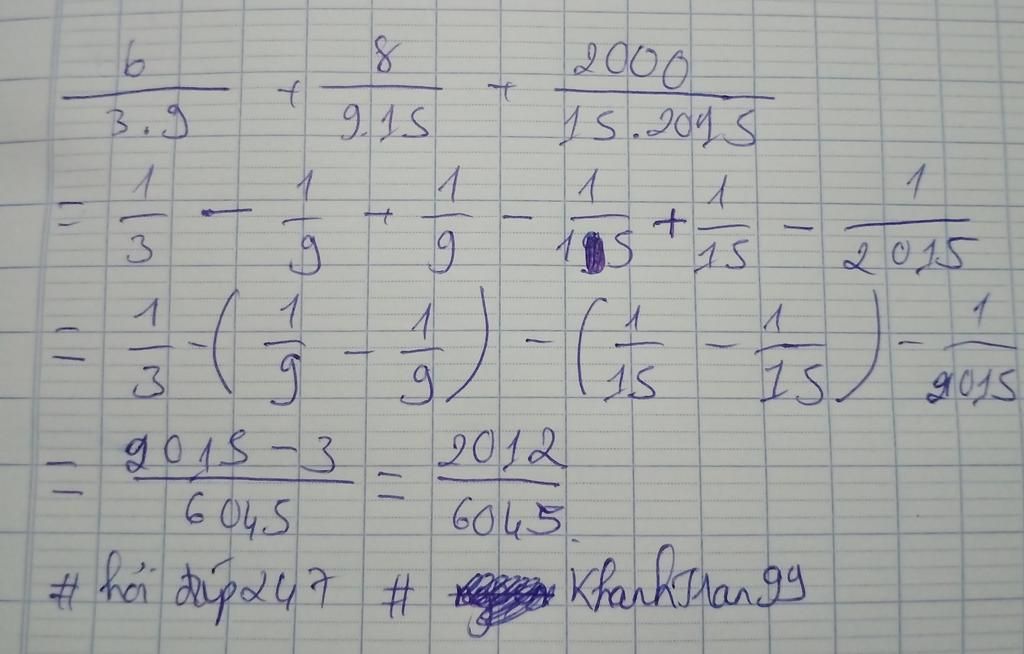 6/3.9 + 8/9.15 + 2000/15.2015
= 1/3 - 1/9 + 1/9 - 1/15 + 1/15 - 1/2015
= 1/3 - (1/9 - 1/9) - (1/15 - 1/15) - 1/2015
= 2015-3/6045 = 2012/6045.
# hỏi đáp247 # KhanhTran99